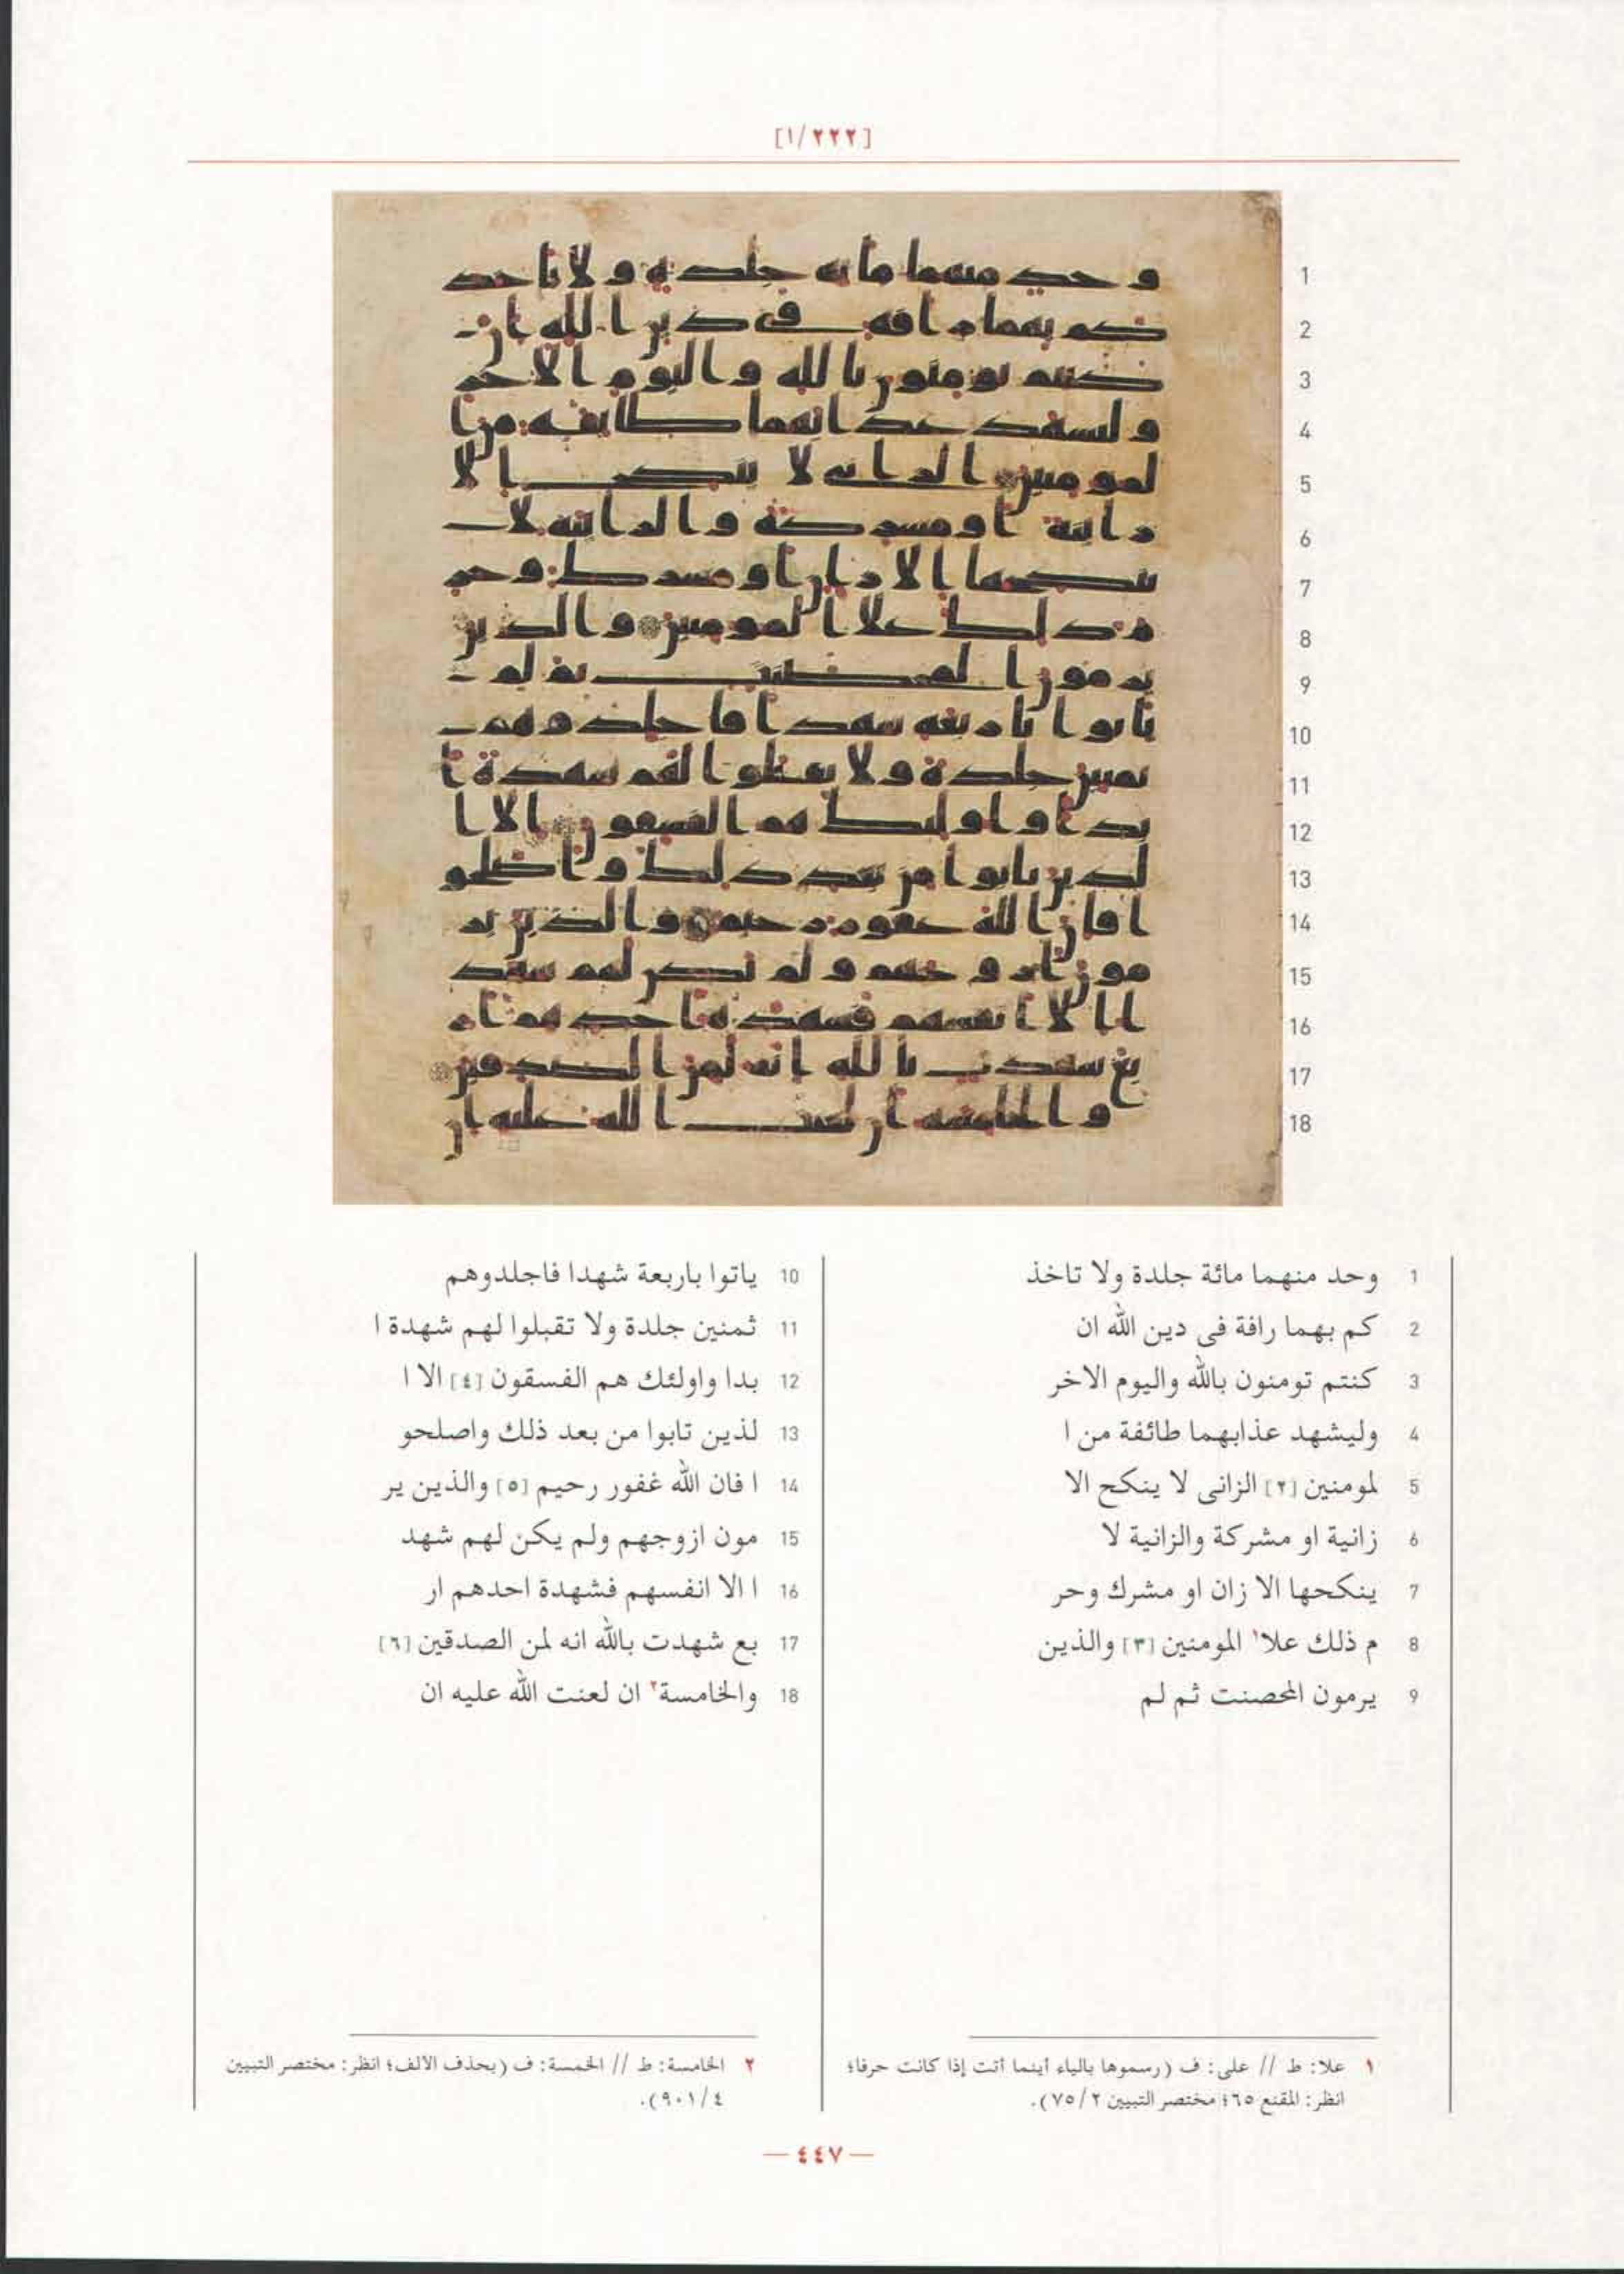 [١/٢٢٢]
1 وحد منهما مائة جلدة ولا تاخذ
2 كم بهما رافة فى دين الله ان
3 كنتم تومنون بالله واليوم الاخر
4 وليشهد عذابهما طائفة من ا
5 لمومنين [٢] الزانى لا ينكح الا
6 زانية او مشركة والزانية لا
7 ينكحها الا زان او مشرك وحر
8 م ذلك علا١ المومنين [٣] والذين
9 يرمون المحصنت ثم لم
10 ياتوا باربعة شهدا فاجلدوهم
11 ثمنين جلدة ولا تقبلوا لهم شهدة ا
12 بدا واولئك هم الفسقون [٤] الا ا
13 لذين تابوا من بعد ذلك واصلحو
14 ا فان الله غفور رحيم [٥] والذين ير
15 مون ازوجهم ولم يكن لهم شهد
16 ا الا انفسهم فشهدة احدهم ار
17 بع شهدت بالله انه لمن الصدقين [٦]
18 والخامسة٢ ان لعنت الله عليه ان
١ علا: ط // على: ف (رسموها بالياء أينما أتت إذا كانت حرفا؛
انظر: المقنع ٦٥؛ مختصر التبيين ٧٥/٢).
٢ الخامسة: ط // الخمسة: ف (بحذف الألف؛ انظر: مختصر التبيين
٩٠١/٤).
— ٤٤٧ —